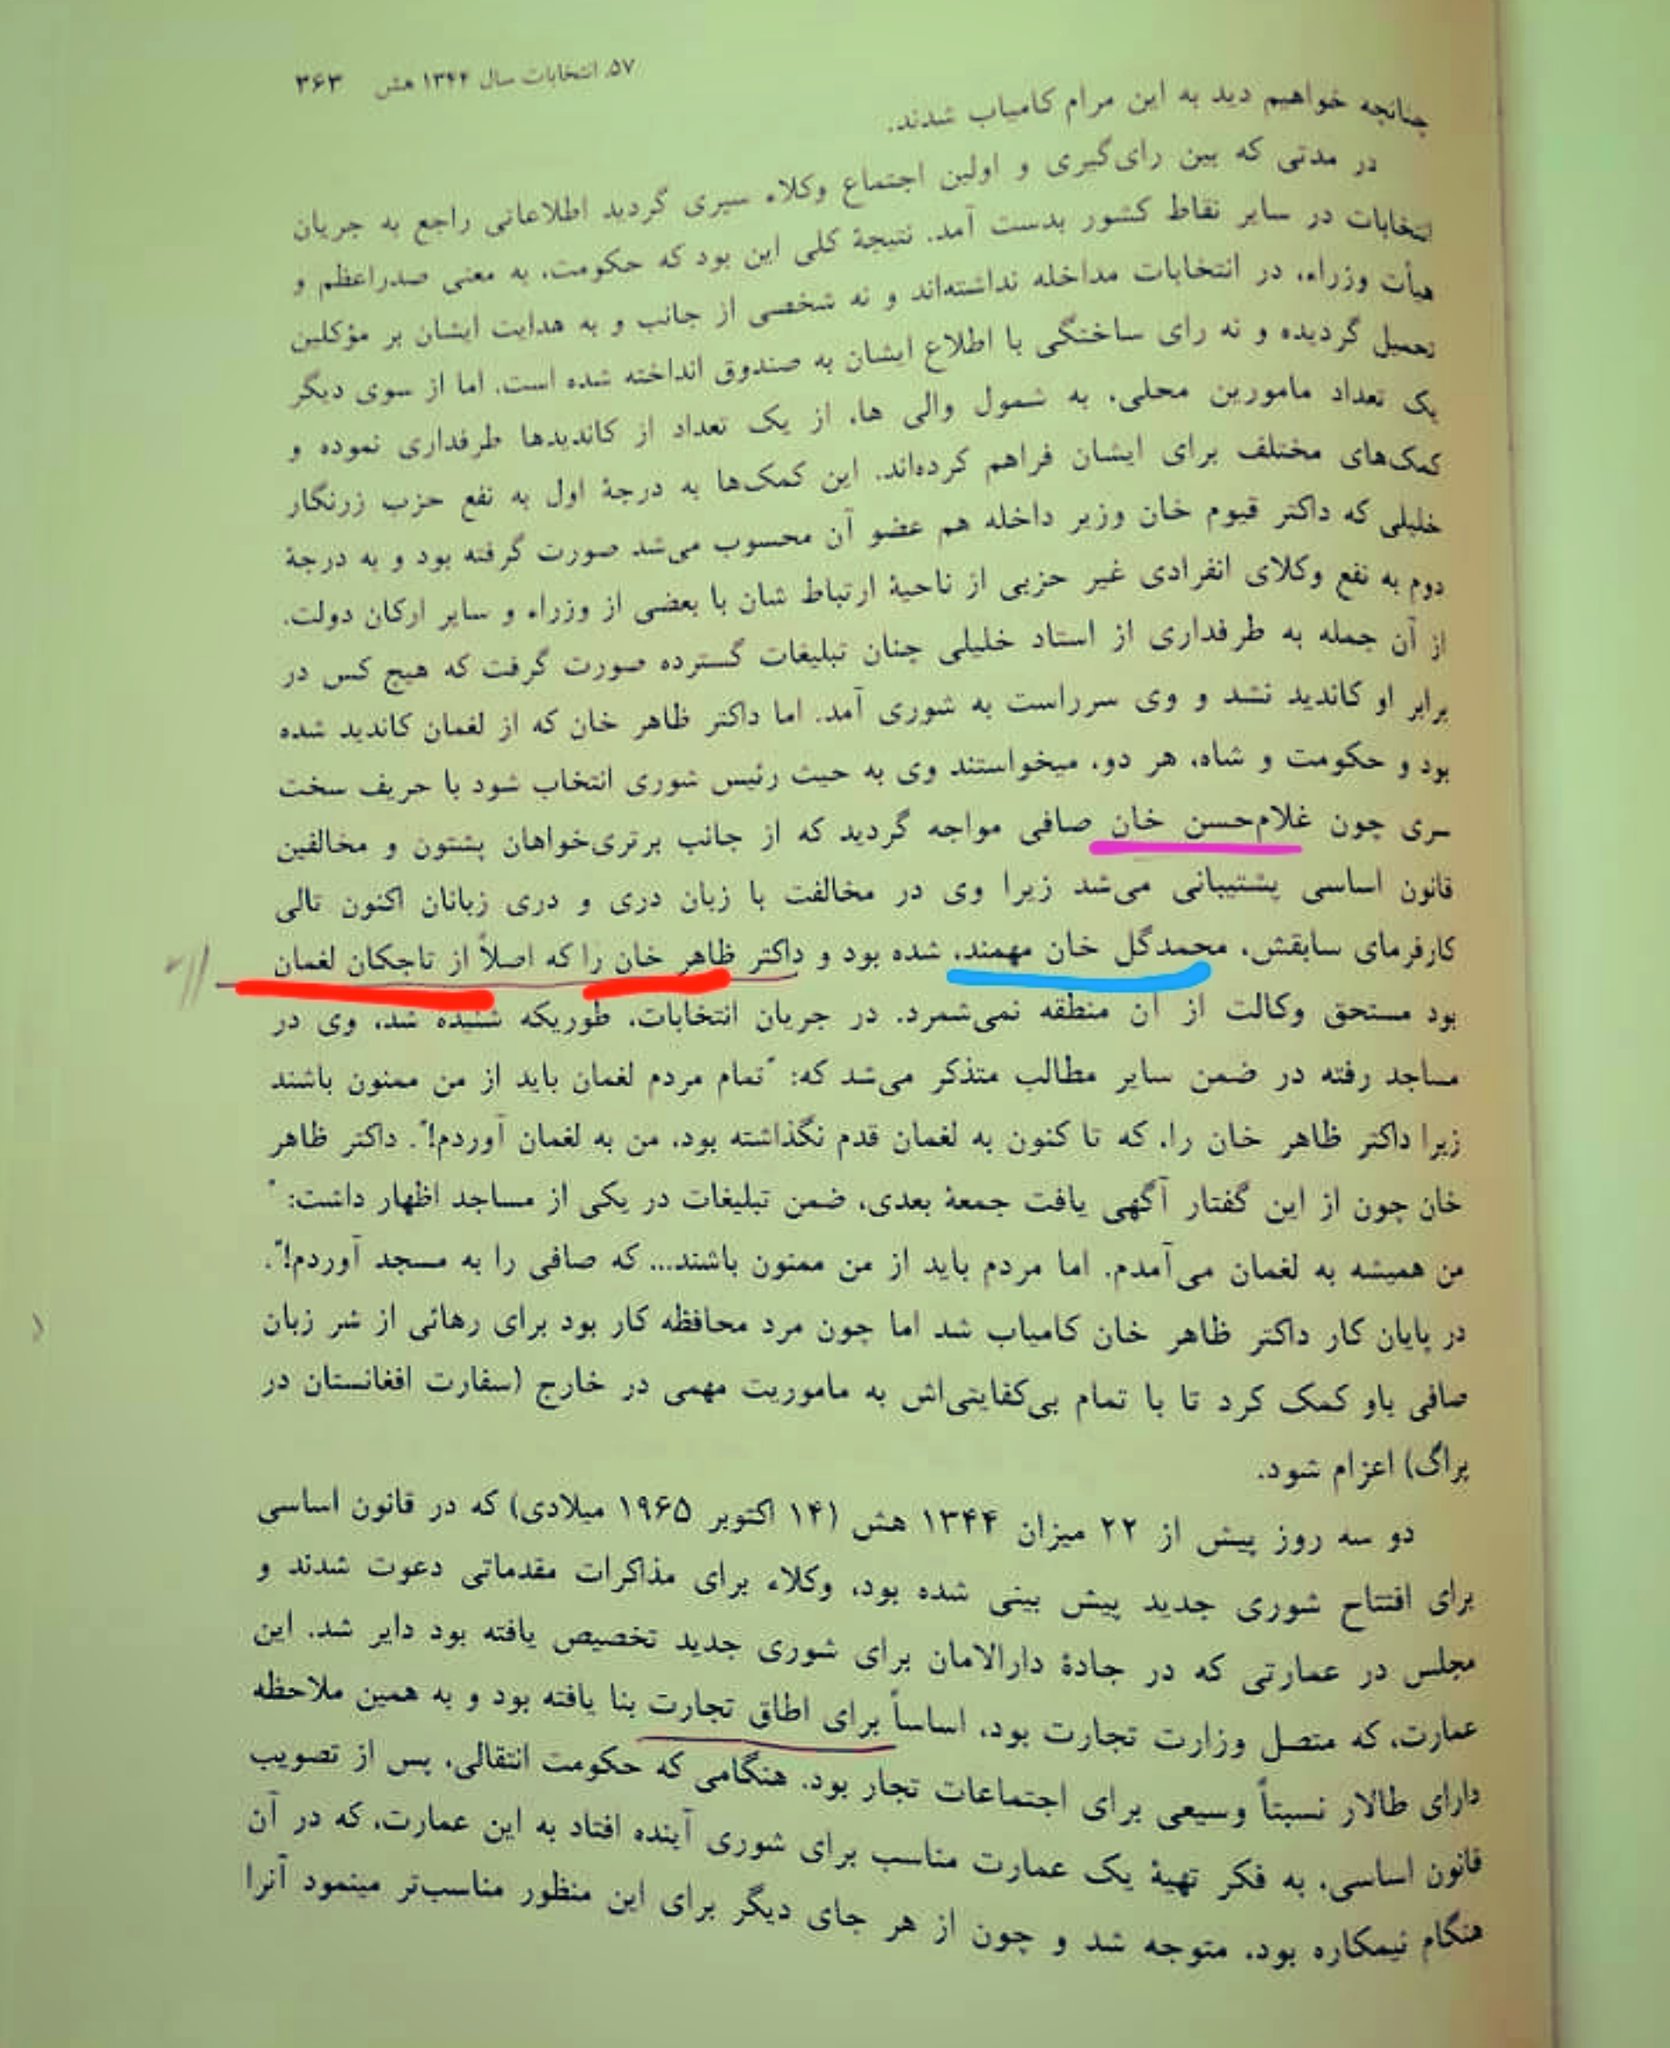 ۵۷. انتخابات سال ۱۳۴۴ هش ۳۶۳
چنانچه خواهیم دید به این مرام کامیاب شدند.
در مدتی که بین رای‌گیری و اولین اجتماع وکلاء سپری گردید اطلاعاتی راجع به جریان
انتخابات در سایر نقاط کشور بدست آمد. نتیجهٔ کلی این بود که حکومت، به معنی صدراعظم و
هیأت وزراء، در انتخابات مداخله نداشته‌اند و نه شخصی از جانب و به هدایت ایشان بر مؤکلین
تحمیل گردیده و نه رای ساختگی با اطلاع ایشان به صندوق انداخته شده است. اما از سوی دیگر
یک تعداد مامورین محلی، به شمول والی ها، از یک تعداد از کاندیدها طرفداری نموده و
کمک‌های مختلف برای ایشان فراهم کرده‌اند. این کمک‌ها به درجهٔ اول به نفع حزب زرنگار
خلیلی که داکتر قیوم خان وزیر داخله هم عضو آن محسوب می‌شد صورت گرفته بود و به درجهٔ
دوم به نفع وکلای انفرادی غیر حزبی از ناحیهٔ ارتباط شان با بعضی از وزراء و سایر ارکان دولت.
از آن جمله به طرفداری از استاد خلیلی چنان تبلیغات گسترده صورت گرفت که هیچ کس در
برابر او کاندید نشد و وی سرراست به شوری آمد. اما داکتر ظاهر خان که از لغمان کاندید شده
بود و حکومت و شاه، هر دو، میخواستند وی به حیث رئیس شوری انتخاب شود با حریف سخت
سری چون غلام‌حسن خان صافی مواجه گردید که از جانب برتری‌خواهان پشتون و مخالفین
قانون اساسی پشتیبانی می‌شد زیرا وی در مخالفت با زبان دری و دری زبانان اکنون تالی
کارفرمای سابقش، محمدگل خان مهمند، شده بود و داکتر ظاهر خان را که اصلاً از تاجکان لغمان
بود مستحق وکالت از آن منطقه نمی‌شمرد. در جریان انتخابات، طوریکه شنیده شد، وی در
مساجد رفته در ضمن سایر مطالب متذکر می‌شد که: "تمام مردم لغمان باید از من ممنون باشند
زیرا داکتر ظاهر خان را، که تا کنون به لغمان قدم نگذاشته بود، من به لغمان آوردم!". داکتر ظاهر
خان چون از این گفتار آگهی یافت جمعهٔ بعدی، ضمن تبلیغات در یکی از مساجد اظهار داشت: "
من همیشه به لغمان می‌آمدم. اما مردم باید از من ممنون باشند... که صافی را به مسجد آوردم!".
در پایان کار داکتر ظاهر خان کامیاب شد اما چون مرد محافظه کار بود برای رهائی از شر زبان
صافی باو کمک کرد تا با تمام بی‌کفایتی‌اش به ماموریت مهمی در خارج (سفارت افغانستان در
پراگ) اعزام شود.
دو سه روز پیش از ۲۲ میزان ۱۳۴۴ هش (۱۴ اکتوبر ۱۹۶۵ میلادی) که در قانون اساسی
برای افتتاح شوری جدید پیش بینی شده بود، وکلاء برای مذاکرات مقدماتی دعوت شدند و
مجلس در عمارتی که در جادهٔ دارالامان برای شوری جدید تخصیص یافته بود دایر شد. این
عمارت، که متصل وزارت تجارت بود، اساساً برای اطاق تجارت بنا یافته بود و به همین ملاحظه
دارای طالار نسبتاً وسیعی برای اجتماعات تجار بود. هنگامی که حکومت انتقالی، پس از تصویب
قانون اساسی، به فکر تهیهٔ یک عمارت مناسب برای شوری آینده افتاد به این عمارت، که در آن
هنگام نیمکاره بود، متوجه شد و چون از هر جای دیگر برای این منظور مناسب‌تر مینمود آنرا